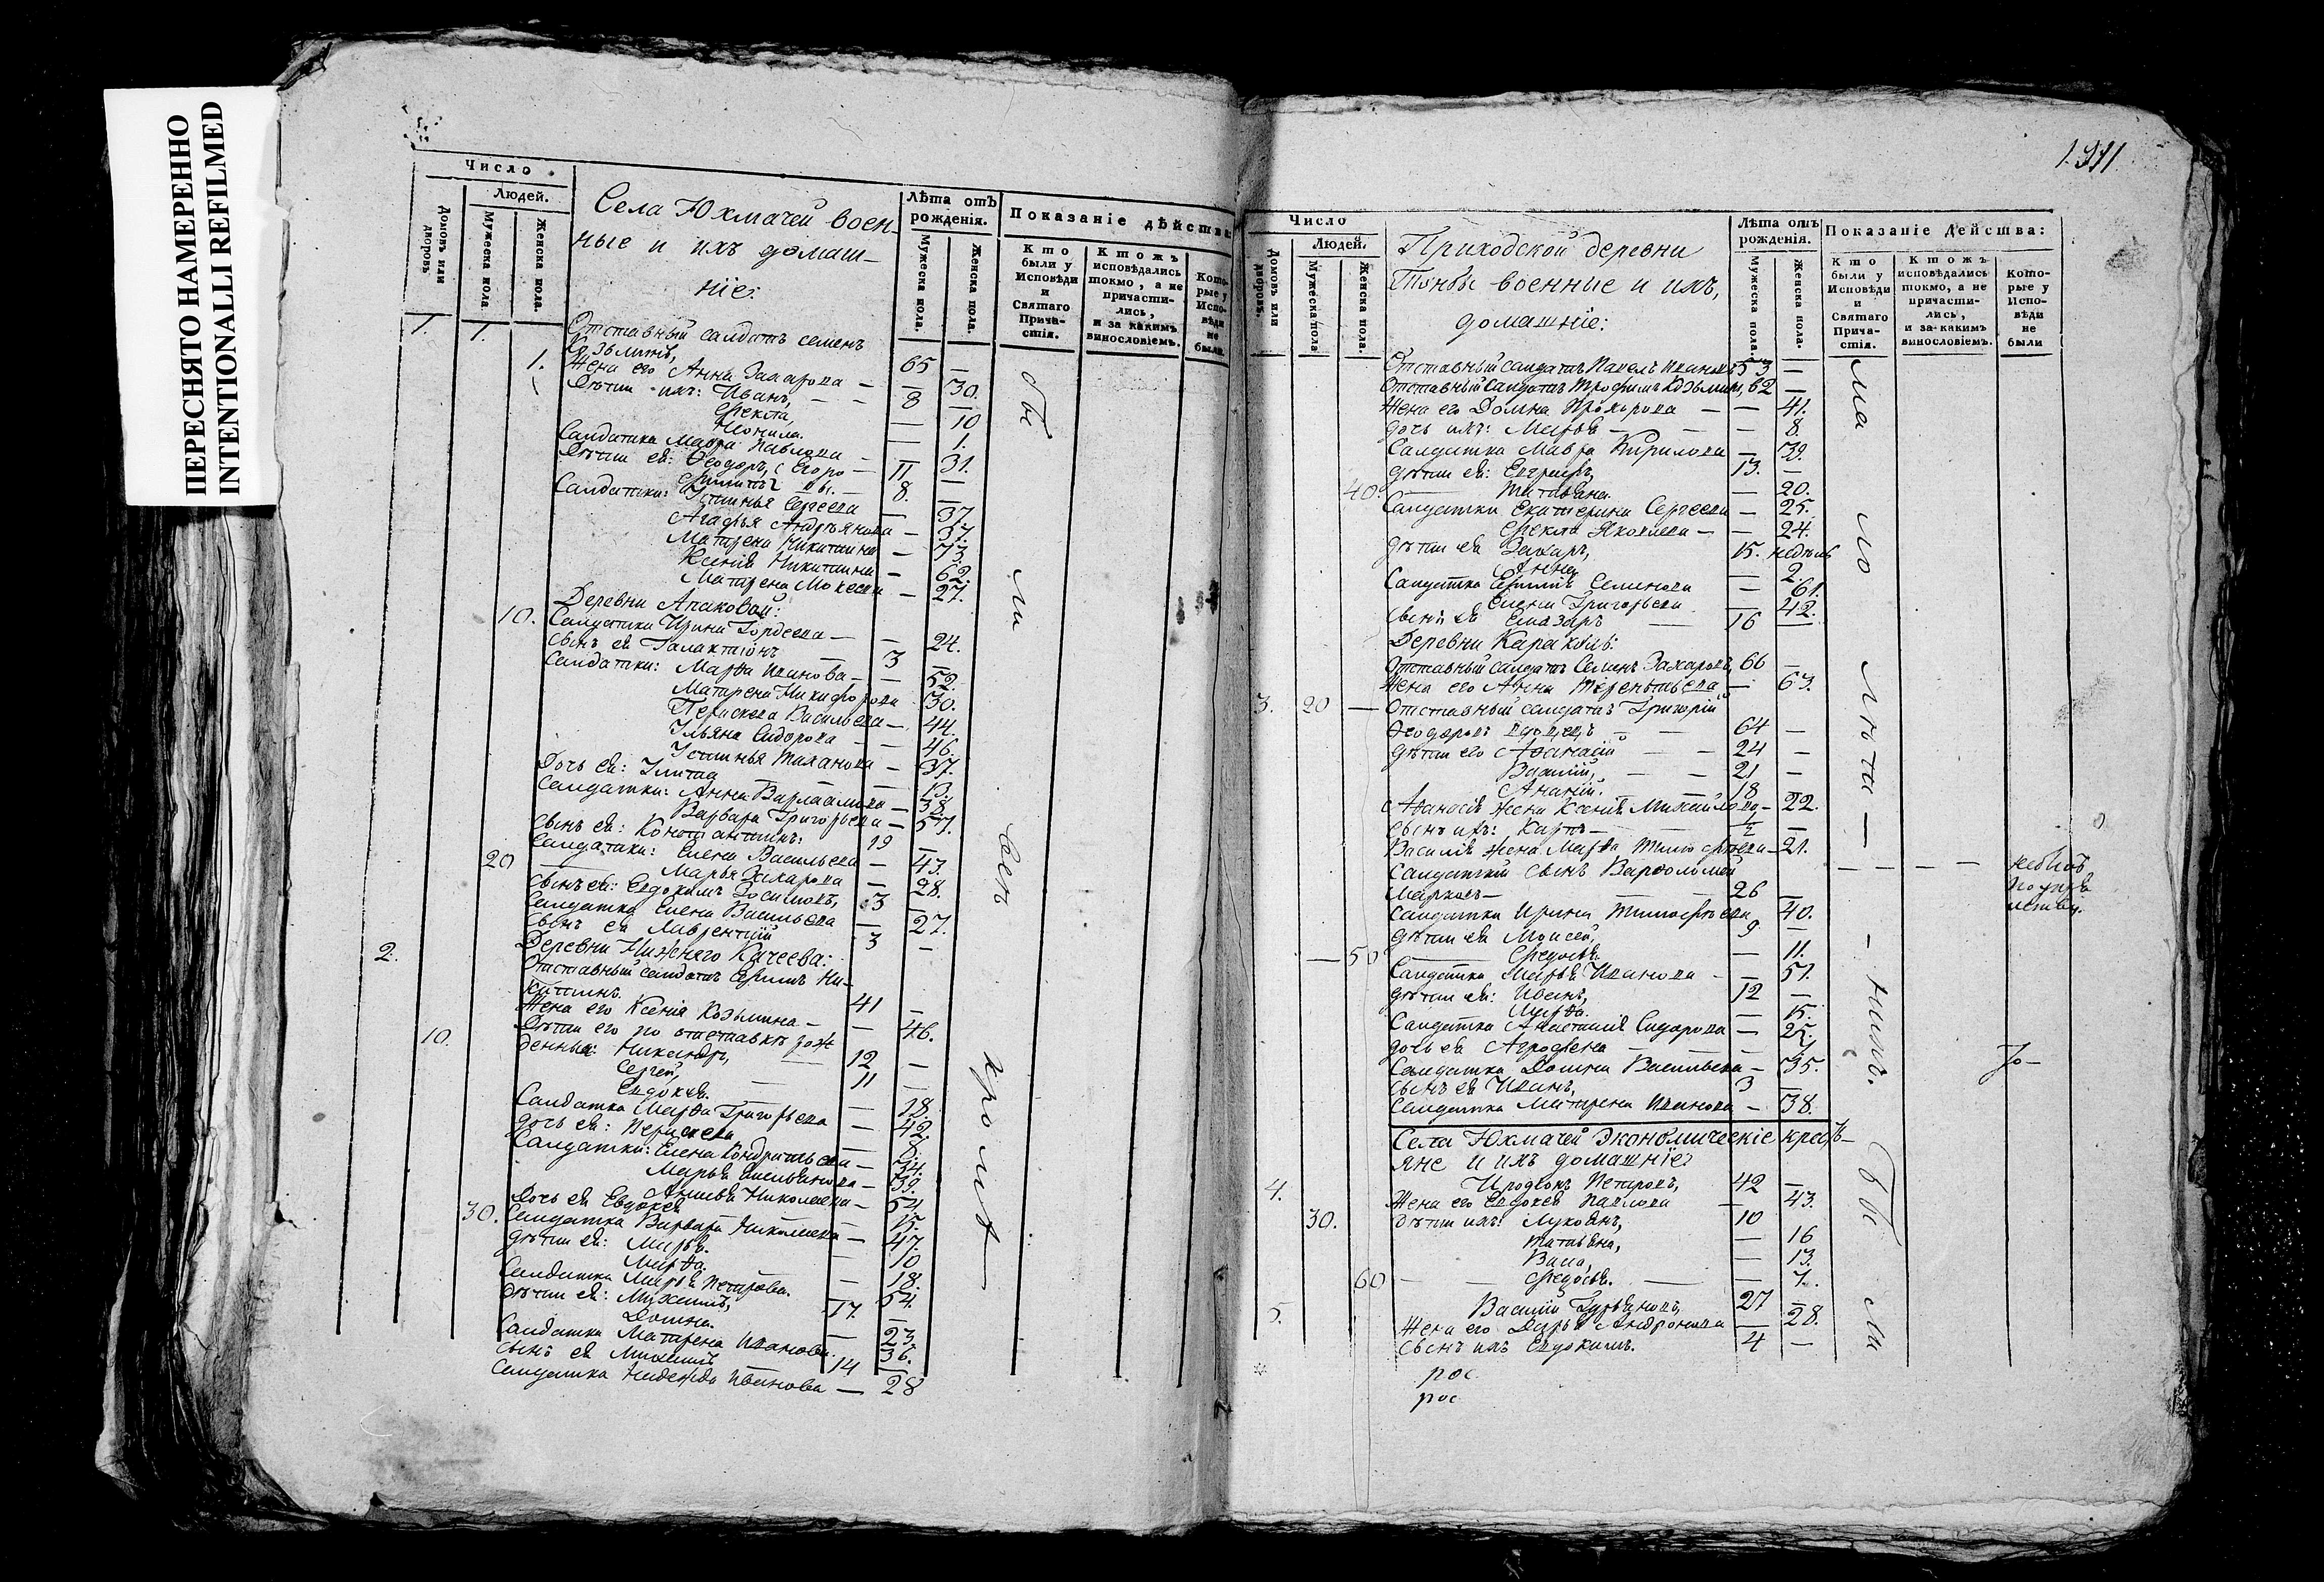 ПЕРЕСНЯТО НАМЕРЕННО
INTENTIONALLI REFILMED
Число
Людей.
Домовъ или дворовъ
Мужеска пола.
Женска пола.
Села Юхмачей воен-
ные и ихъ домаш-
ніе:
Лѣта отъ рожденія.
Мужеска пола.
Женска пола.
Показаніе дѣйства:
Кто были у Исповѣди и Святаго Прича-стія.
Ктожъ исповѣдались токмо, а не причасти-лись, и за какимъ винословіемъ.
Кото-рые у Испо-вѣди не были.
1. 1. Отставный салдатъ Семенъ
Козьминъ, 65 —
1. Жена его Анна Захарова — — 30.
Дѣти ихъ: Иванъ, — — 8 —
Ѳекла, — 10
— 1.
Салдатка Мавра Павлова — — 31.
Дѣти ея: Ѳеодоръ, 11 —
8. —
Салдатки: Устинья Сергеева — 37.
Агафья Андреянова — 37.
Матрена Никитина — 73.
Ксенія Никитина — 62.
Матрена Мокеева — 27.
Деревни Апаковой:
10. Салдатка Ирина Гордеева — — 24.
Сынъ ея Галактіонъ 3 —
Салдатки: Марѳа Иванова — — 52.
Матрена Никифорова 30.
Параскева Васильева — 44.
Ульяна Сидорова — — 46.
Устинья — 37.
Дочь ея: Улита — 13.
Салдатки: Анна Варлаамова — 38.
Варвара Григорьева — 57.
Сынъ ея: Константинъ. 19 —
Салдатки: Елена Васильева — 43.
20 Марья Захарова — 28.
Сынъ ея: Евдокимъ 3 —
Салдатка Елена Васильева — 27.
Сынъ ея Лаврентій 3 —
2. Деревни Нижняго Качеева:
Отставный салдатъ Ефимъ Ни-
китинъ. 41 —
Жена его Ксенія Козьмина — — 46.
10. Дѣти его по отставкѣ рож
денныя: Никаноръ, 12 —
Сергей, 11 —
Евдокія. — 18.
Салдатка Марѳа Григорьева — 42.
Дочь ея: Параскева — 8.
Салдатки: Елена Кондратьева — 34.
Марья Емельянова — 39.
Николаева — 54
Дочь ея Евдокея — 15.
30. Салдатка Варвара Николаева — 47.
Дѣти ея: Марья. 10
Марѳа. — 18.
Салдатка Марья Петрова. — 54.
Дѣти ея: 17. —
Домна. — 23.
Салдатка Матрена Иванова. 36.
Сынъ ея 14 —
Салдатка Надежда Иванова — 28
Число
Людей.
Домовъ или дворовъ.
Мужеска пола
Женска пола.
Приходской деревни
военные и ихъ,
домашніе:
Лѣта отъ рожденія.
Мужеска пола.
Женска пола.
Показаніе Действа:
Кто были у Исповѣди и Святаго Прича-стія.
Ктожъ исповѣдались токмо, а не причасти-лись, и за какимъ винословіемъ.
Кото-рые у Испо-вѣди не были
Отставный салдатъ Павелъ Ивановъ 53 —
Отставный салдатъ Трофимъ Козьминъ, 62 —
Жена его Домна Прохорова — — 41.
дочь ихъ: Марья — — 8.
Салдатка Мавра Кирилова — 39.
дѣти ея: Евграфъ, 13. —
40. Татьяна. — 20.
Салдатки Екатерина Сергеева — 25.
Ѳекла Яковлева — 24.
дѣти ея Захаръ, 15. недѣль
Анна — 2.
Салдатка Семенова — 61.
Елена Григорьева — 42.
Сынъ ея Елизаръ — 16 —
Деревни Каракюль:
Отставный салдатъ Семенъ Захаровъ, 66 —
Жена его Анна Терентьева — 63.
3. 20 — Отставный салдатъ Григорій
Ѳеодоровъ вдовецъ — 64 —
дѣти его Аѳанасій — — 24 —
Василій, — — 21 —
Ананій. 18 —
Аѳанасія жена Ксенія Михайлова — 22.
Сынъ ихъ: Карпъ — 1/2 —
Василія жена Марѳа Тимофѣева — 21.
Салдатскій сынъ Варѳоломей
Марковъ — 26 —
Салдатка Ирина Тимофѣева 40.
дѣти ея Моисей, 9 —
50 Ѳедосья. — 11.
Салдатка Марья Иванова — — 51.
дѣти ея: Иванъ, 12 —
Марѳа. — 15.
Салдатка Анастасія Сидорова — 25.
дочь ея Агрофена — — 1.
Салдатка Домна Васильева — 35.
Сынъ ея Иванъ, 3 —
Салдатка Матрена Иванова — 38.
Села Юхмачей Экономическіе кресть-
яне и ихъ домашніе:
4. Иродіонъ Петровъ, 42 —
Жена его Евдокея Павлова — 43.
30. Дѣти ихъ: Лукьянъ, 10
Татьяна, — 16
Васа, — 13.
60 — Ѳедосья. — — 7.
5. Василій Гурьяновъ, 27 —
Жена его Дарья Андронова — 28.
Сынъ ихъ Евдокимъ. 4 —
рос
рос